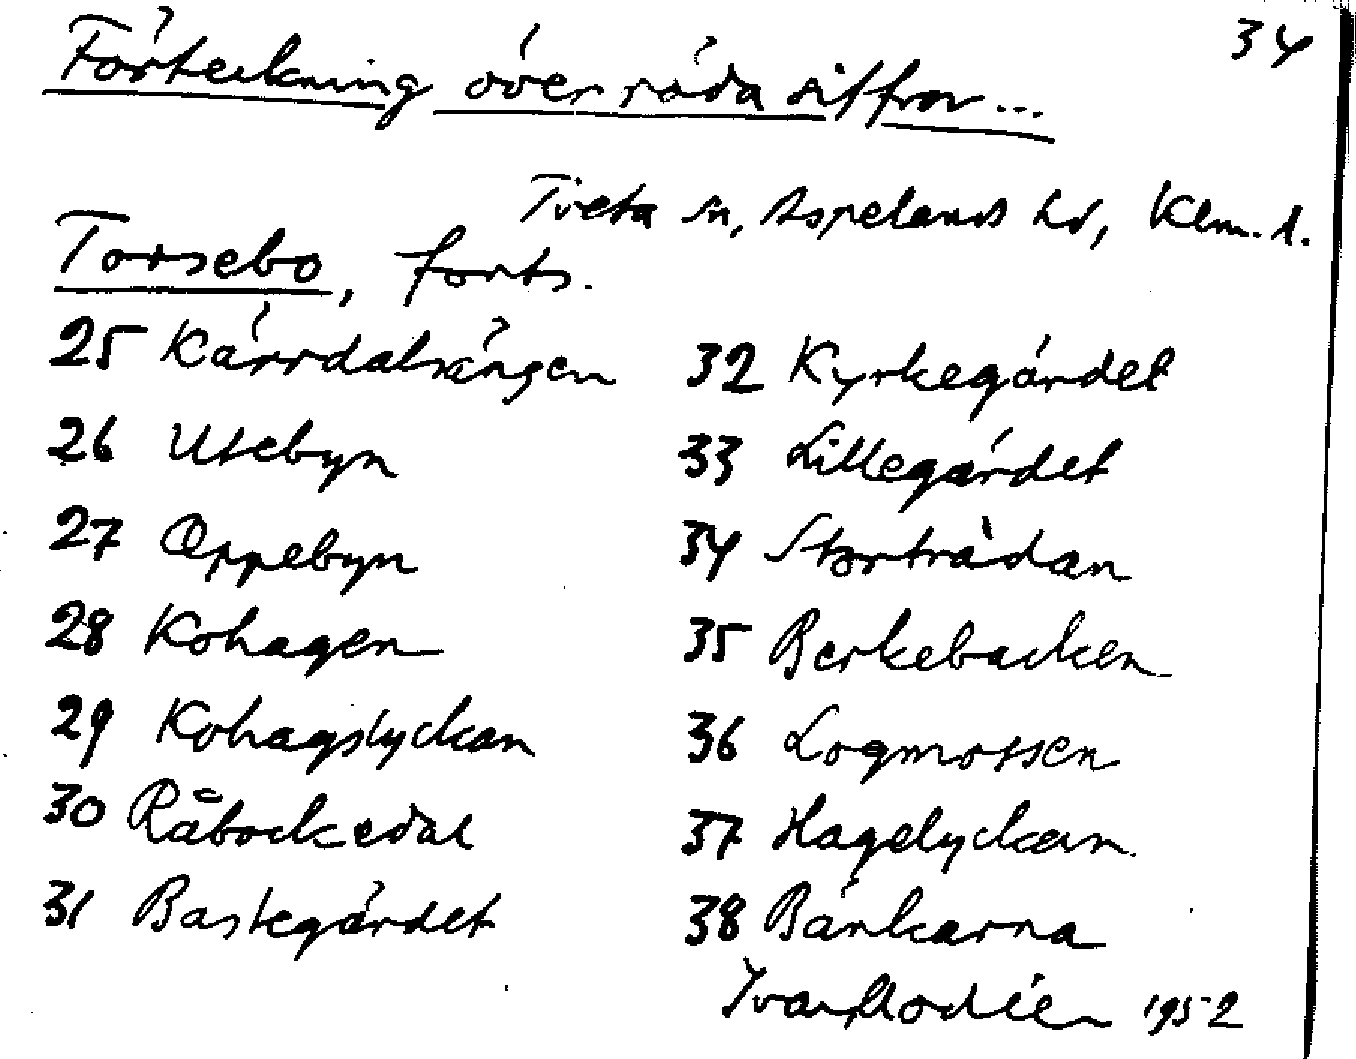 34
Förteckning över röda siffror...
Tveta sn, Aspelands hd, Klm. l.
Torsebo, forts.
25 Kärrdalsängen
26 Utebyn
27 Oppebyn
28 Kohagen
29 Kohagslyckan
30 Råbockedal
31 Bastegärdet
32 Kyrkegärdet
33 Lillegärdet
34 Storträdan
35 Berkebacken
36 Logmossen
37 Hagelyckan
38 Bänkarna
Ivar Modéer 1952